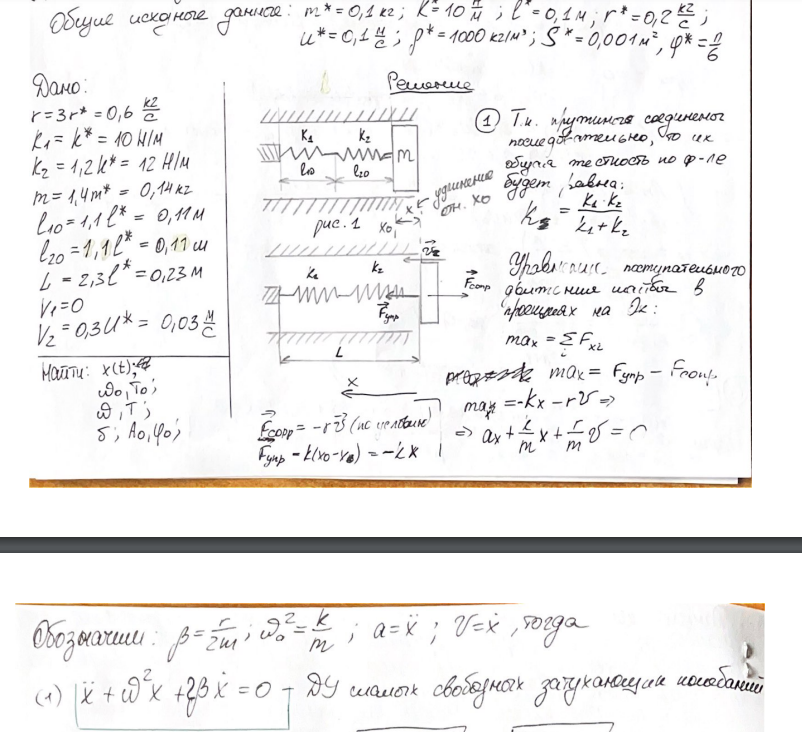 Общие исходные данные: m* = 0,1 кг; k* = 10 Н/м; l* = 0,1 м; r* = 0,2 кг/с;
u* = 0,1 м/с; ρ* = 1000 кг/м³; S* = 0,001 м², φ* = π/6
Дано:
r = 3r* = 0,6 кг/с
k₁ = k* = 10 Н/м
k₂ = 1,2k* = 12 Н/м
m = 1,4m* = 0,14 кг
l₁₀ = 1,1 l* = 0,11 м
l₂₀ = 1,1 l* = 0,11 м
L = 2,3 l* = 0,23 м
V₁ = 0
V₂ = 0,3 U* = 0,03 м/с
Найти: x(t);
ω₀, T₀;
ω, T;
δ; A₀, φ₀;
Решение
k₁ k₂
m
l₁₀ l₂₀
x
x₀
удлинение
отн. x₀
рис. 1
k₁ k₂
v⃗₂
F⃗сопр
F⃗упр
L
x
F⃗сопр = -rv⃗ (по условию)
① Т.к. пружины соединены
последовательно, то их
общая жесткость по ф-ле
будет равна:
k = k₁·k₂/(k₁+k₂)
Уравнение поступательного
движения шайбы в
проекциях на Ox:
maₓ = Σᵢ Fₓᵢ
maₓ = Fупр - Fсопр
maₓ = -kx - rv ⇒
⇒ aₓ + k/m x + r/m v = 0
Обозначим: β = r/2m; ω₀² = k/m; a = ẍ; v = ẋ, тогда
(1) ẍ + ω²x + 2βẋ = 0 - ДУ малых свободных затухающих колебаний